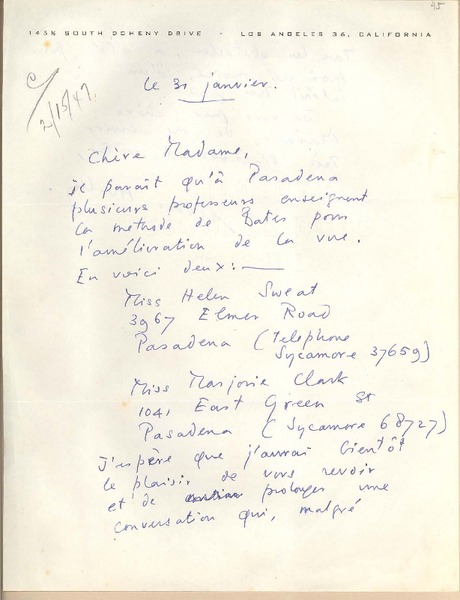 45
145½ SOUTH DOHENY DRIVE · LOS ANGELES 36, CALIFORNIA
2/15/47.
le 31 janvier.
Chère Madame,
je paraît qu'à Pasadena
plusieurs professeurs enseignent
la méthode de Bates pour
l'amélioration de la vue.
En voici deux: —
Miss Helen Sweat
3967 Elmer Road
Pasadena (Telephone
Sycamore 37659)
Miss Marjorie Clark
1041 East Green St
Pasadena (Sycamore 68727)
J'espère que j'aurai bientôt
le plaisir de vous revoir
et de prolonger une
conversation qui, malgré